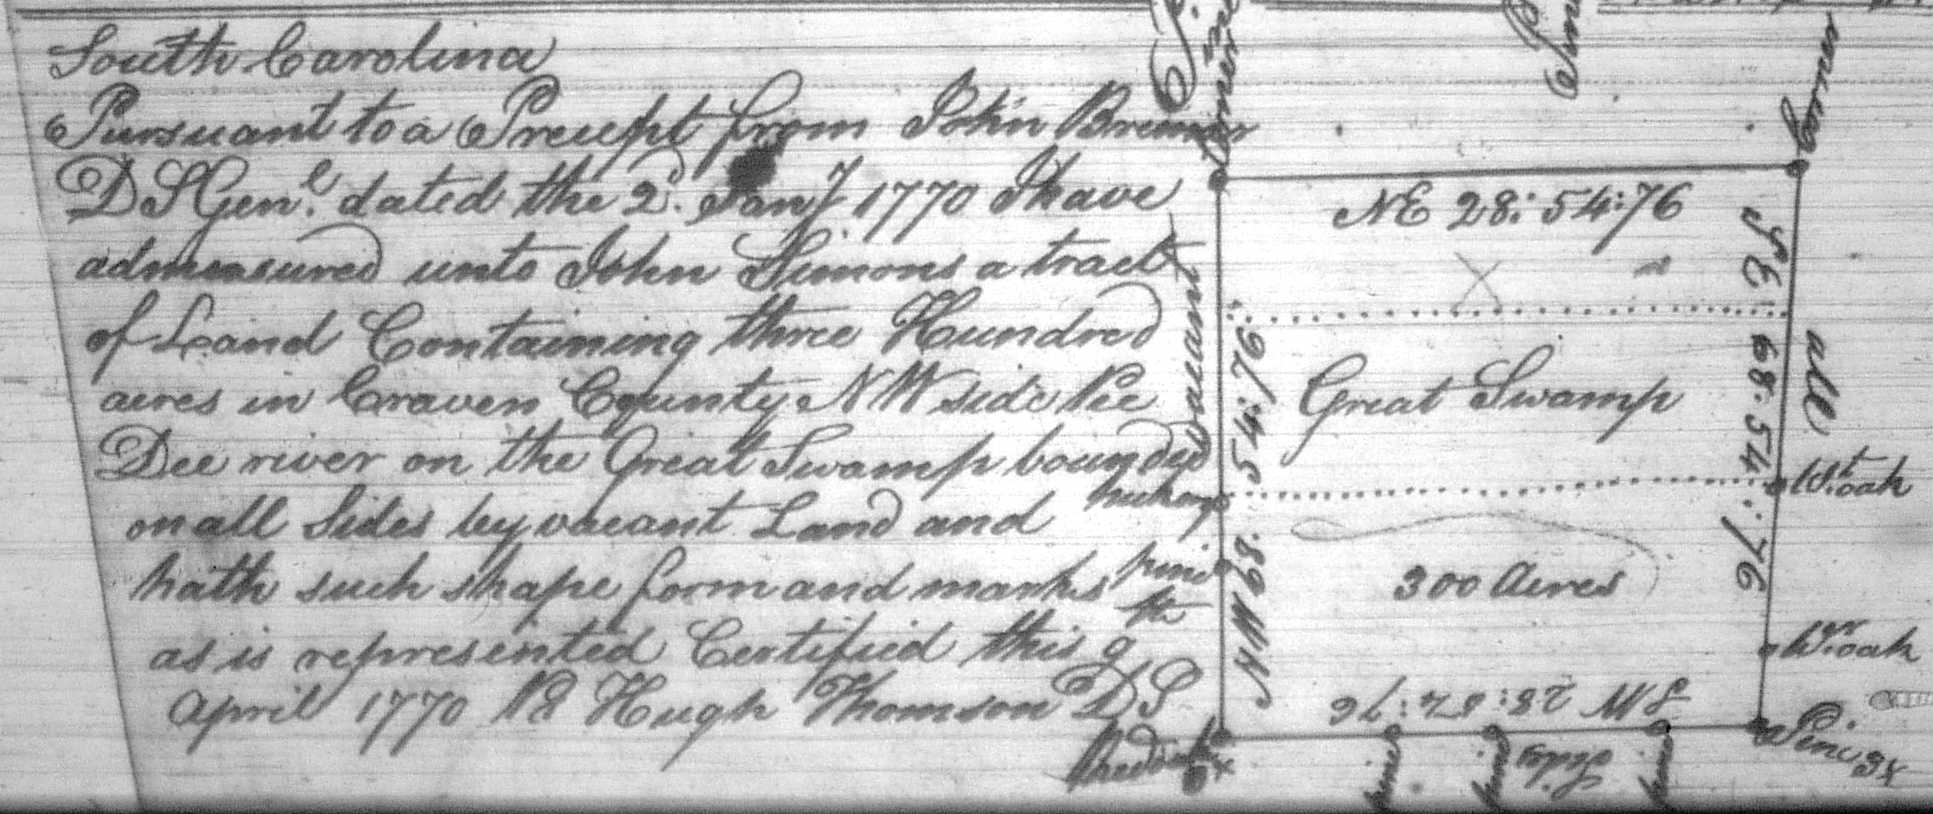 South Carolina
Pursuant to a Precept from John Bremar
D S Gen.l dated the 2.d Jany 1770 I have
admeasured unto John Simons a tract
of Land Containing three Hundred
acres in Craven County N W side Pee
Dee river on the Great Swamp bounded
on all Sides by vacant Land and
hath such shape form and marks
as is represented Certified this 9th
April 1770 Pr Hugh Thomson D S
NE 28: 54:76
vacant
NW 68. 54:76
hickory
pine
Great Swamp
300 Acres
SE 68. 54:76
all
Wt. oak
Wr. oak
Pine 3x
SW 28: 54:76
Sides
pine